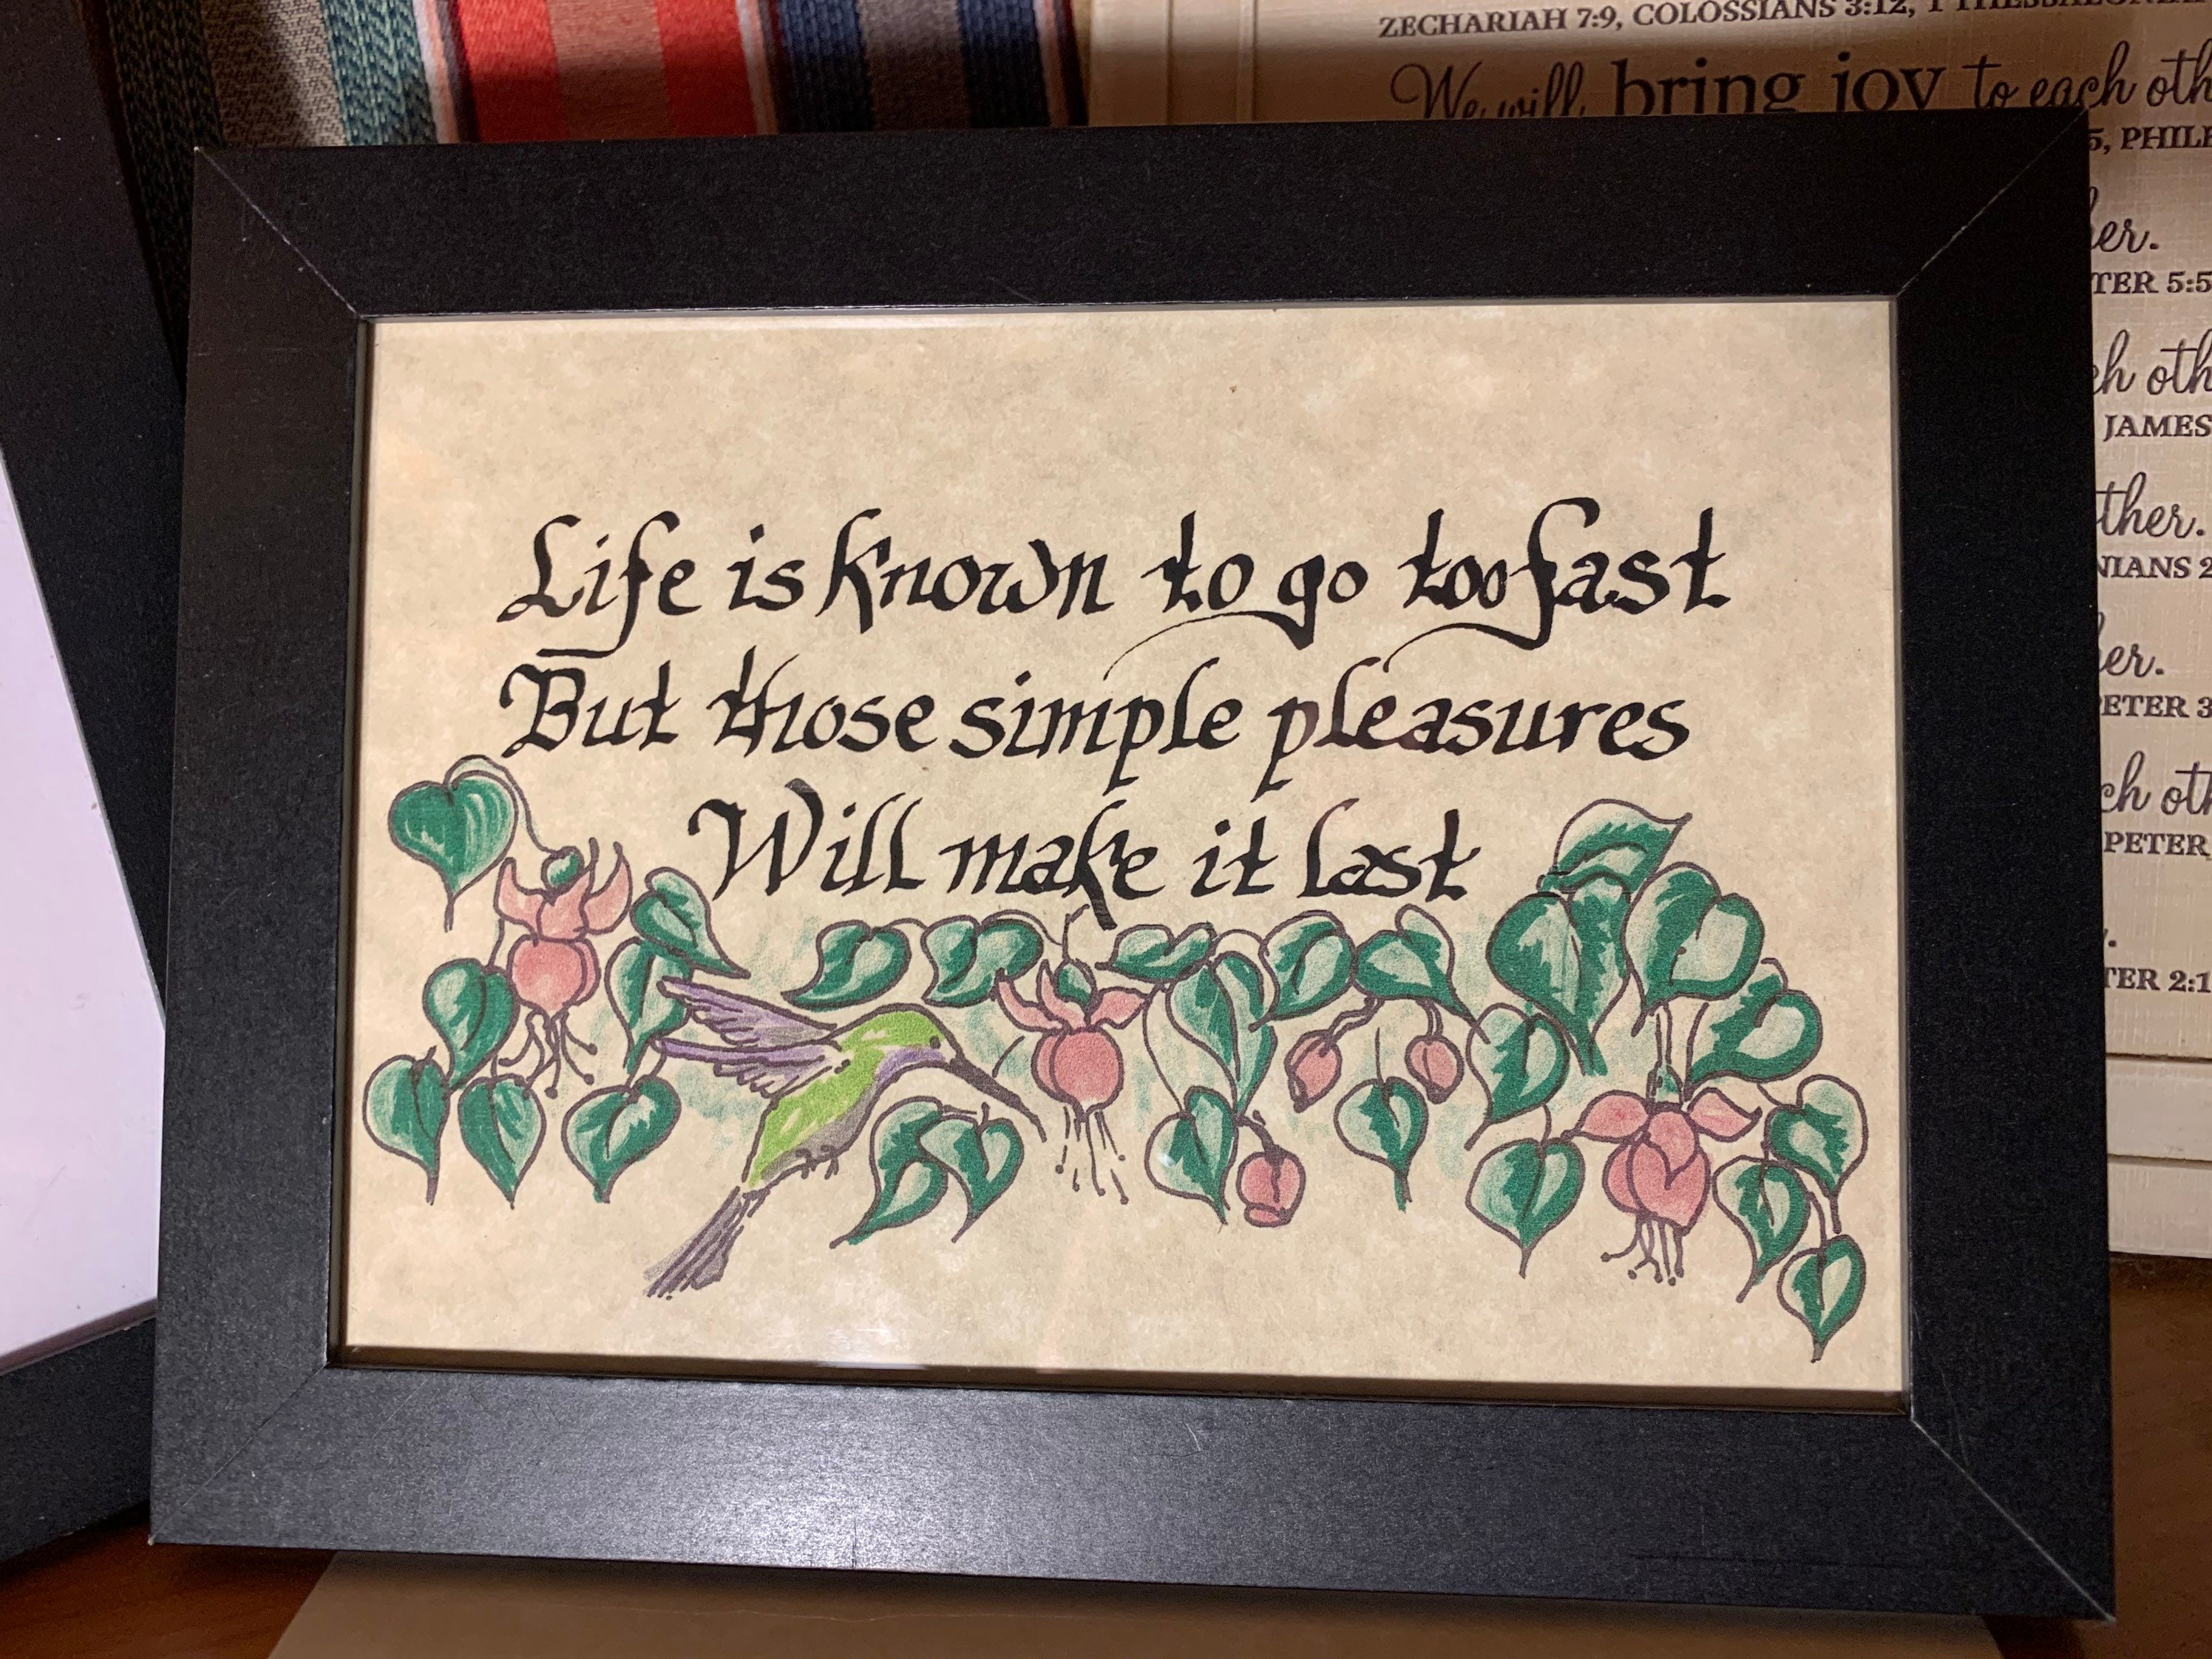 ZECHARIAH 7:9, COLOSSIANS 3:12, 1
We will bring joy to each oth
5, PHILE
her.
TER 5:5
ch oth
JAMES
ther.
NIANS 2
her.
PETER 3
ch oth
PETER
TER 2:1
Life is known to go too fast
But those simple pleasures
Will make it last